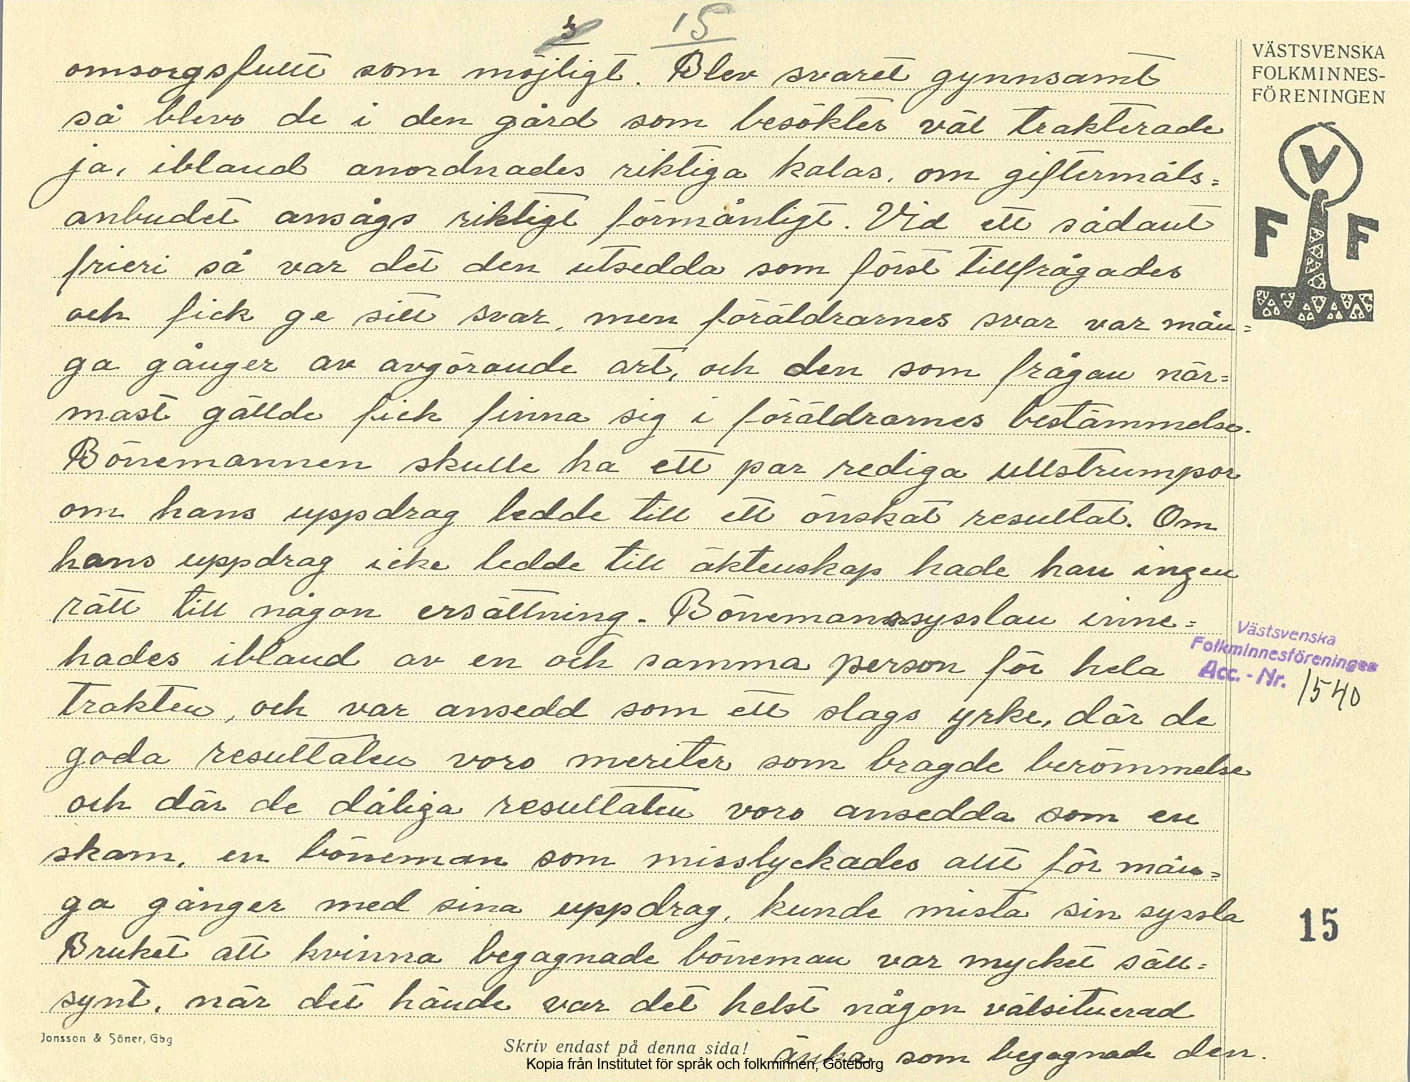 15
omsorgsfullt som möjligt. Blev svaret gynnsamt
så blevo de i den gård som besöktes väl trakterade
ja, ibland anordnades riktiga kalas, om giftermåls=
anbudet ansågs riktigt förmånligt. Vid ett sådant
frieri så var det den utsedda som först tillfrågades
och fick ge sitt svar, men föräldrarnes svar var mån=
ga gånger av avgörande art, och den som frågan när=
mast gällde fick finna sig i föräldrarnes bestämmelse.
Bönemannen skulle ha ett par rediga ullstrumpor
om hans uppdrag ledde till ett önskat resultat. Om
hans uppdrag icke ledde till äktenskap hade han ingen
rätt till någon ersättning. Bönemanssysslan inne=
hades ibland av en och samma person för hela
trakten, och var ansedd som ett slags yrke, där de
goda resultaten voro meriter som bragde berömmelse
och där de dåliga resultaten voro ansedda som en
skam, en böneman som misslyckades allt för mån=
ga gånger med sina uppdrag, kunde mista sin syssla
Bruket att kvinna begagnade böneman var mycket säll=
synt, när det hände var det helst någon välsituerad
änka som begagnade den.
VÄSTSVENSKA
FOLKMINNES-
FÖRENINGEN
V
F F
Västsvenska
Folkminnesföreningen
Acc.-Nr. 1540
15
Jonsson & Söner, Gbg
Skriv endast på denna sida!
Kopia från Institutet för språk och folkminnen, Göteborg